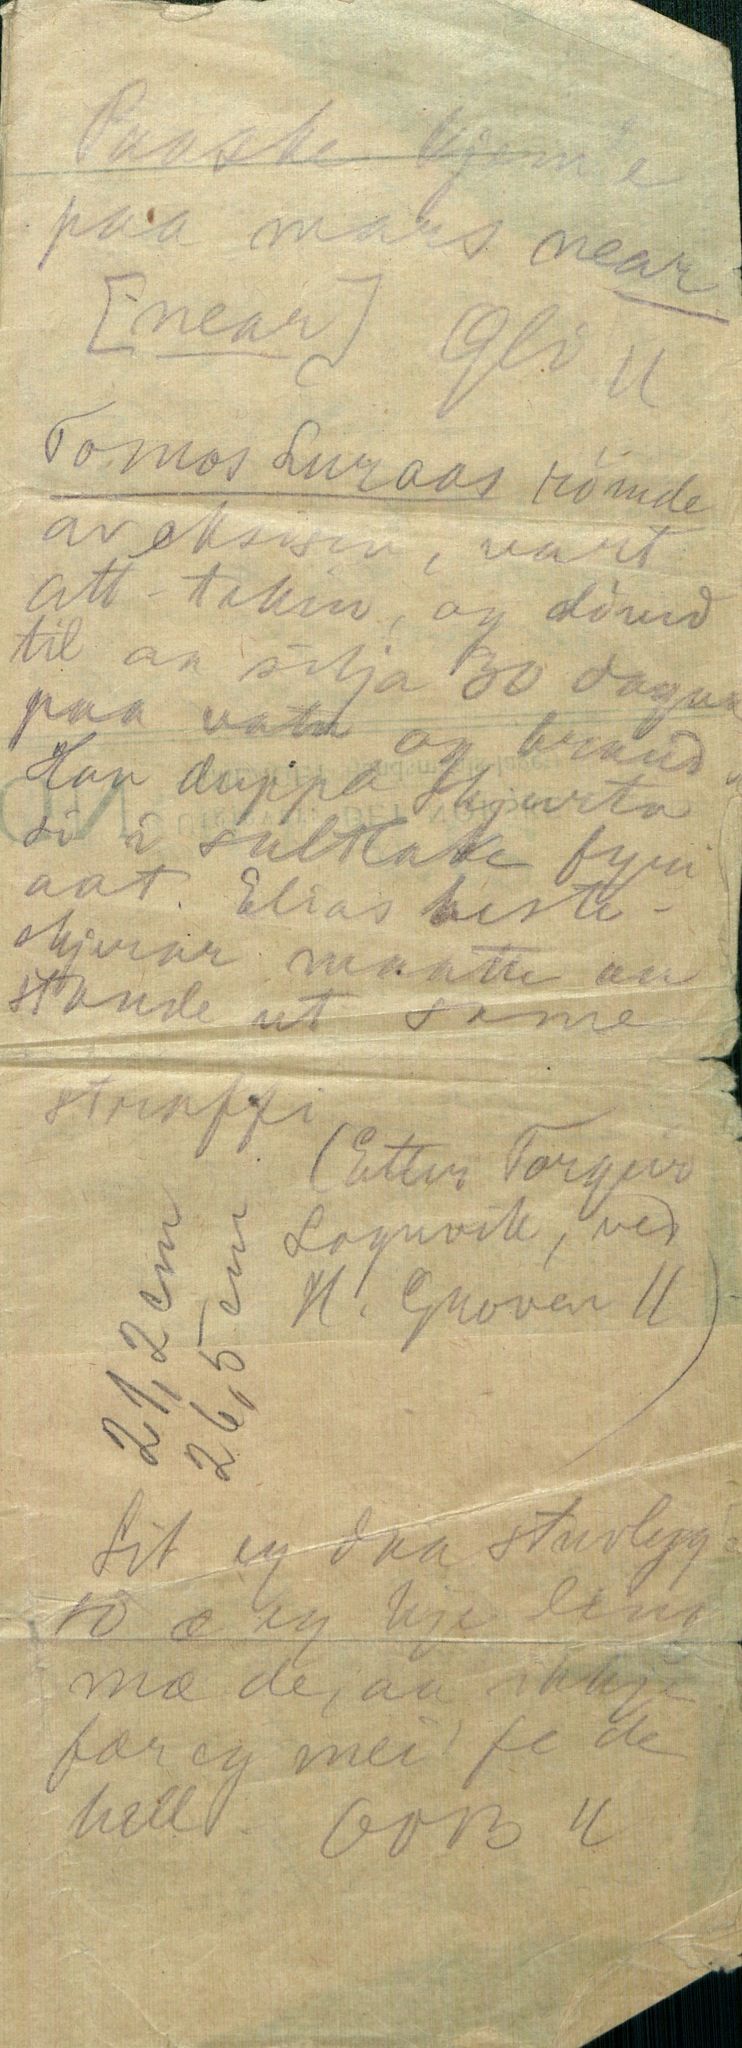 Paaske kjem'e
paa mars near
[near] Gli //
Tomos Luraas römde
av eksisen, vart
att-tekin, og dömd
til aa sitja 30 dagar
paa vatn og braud
Han duppa skjurta
si i saltlake fyri
aat. Elias heste-
skjerar maatte au
stande ut same
straffi
(Etter Torgeir
Loguvik, ved
H. Groven //
)
21,2 cm
26,5 cm
Lit eg daa sturlegg
so æ eg kje
mæ de, aa ikkje
fær eg mei fe de
hell. OOB //